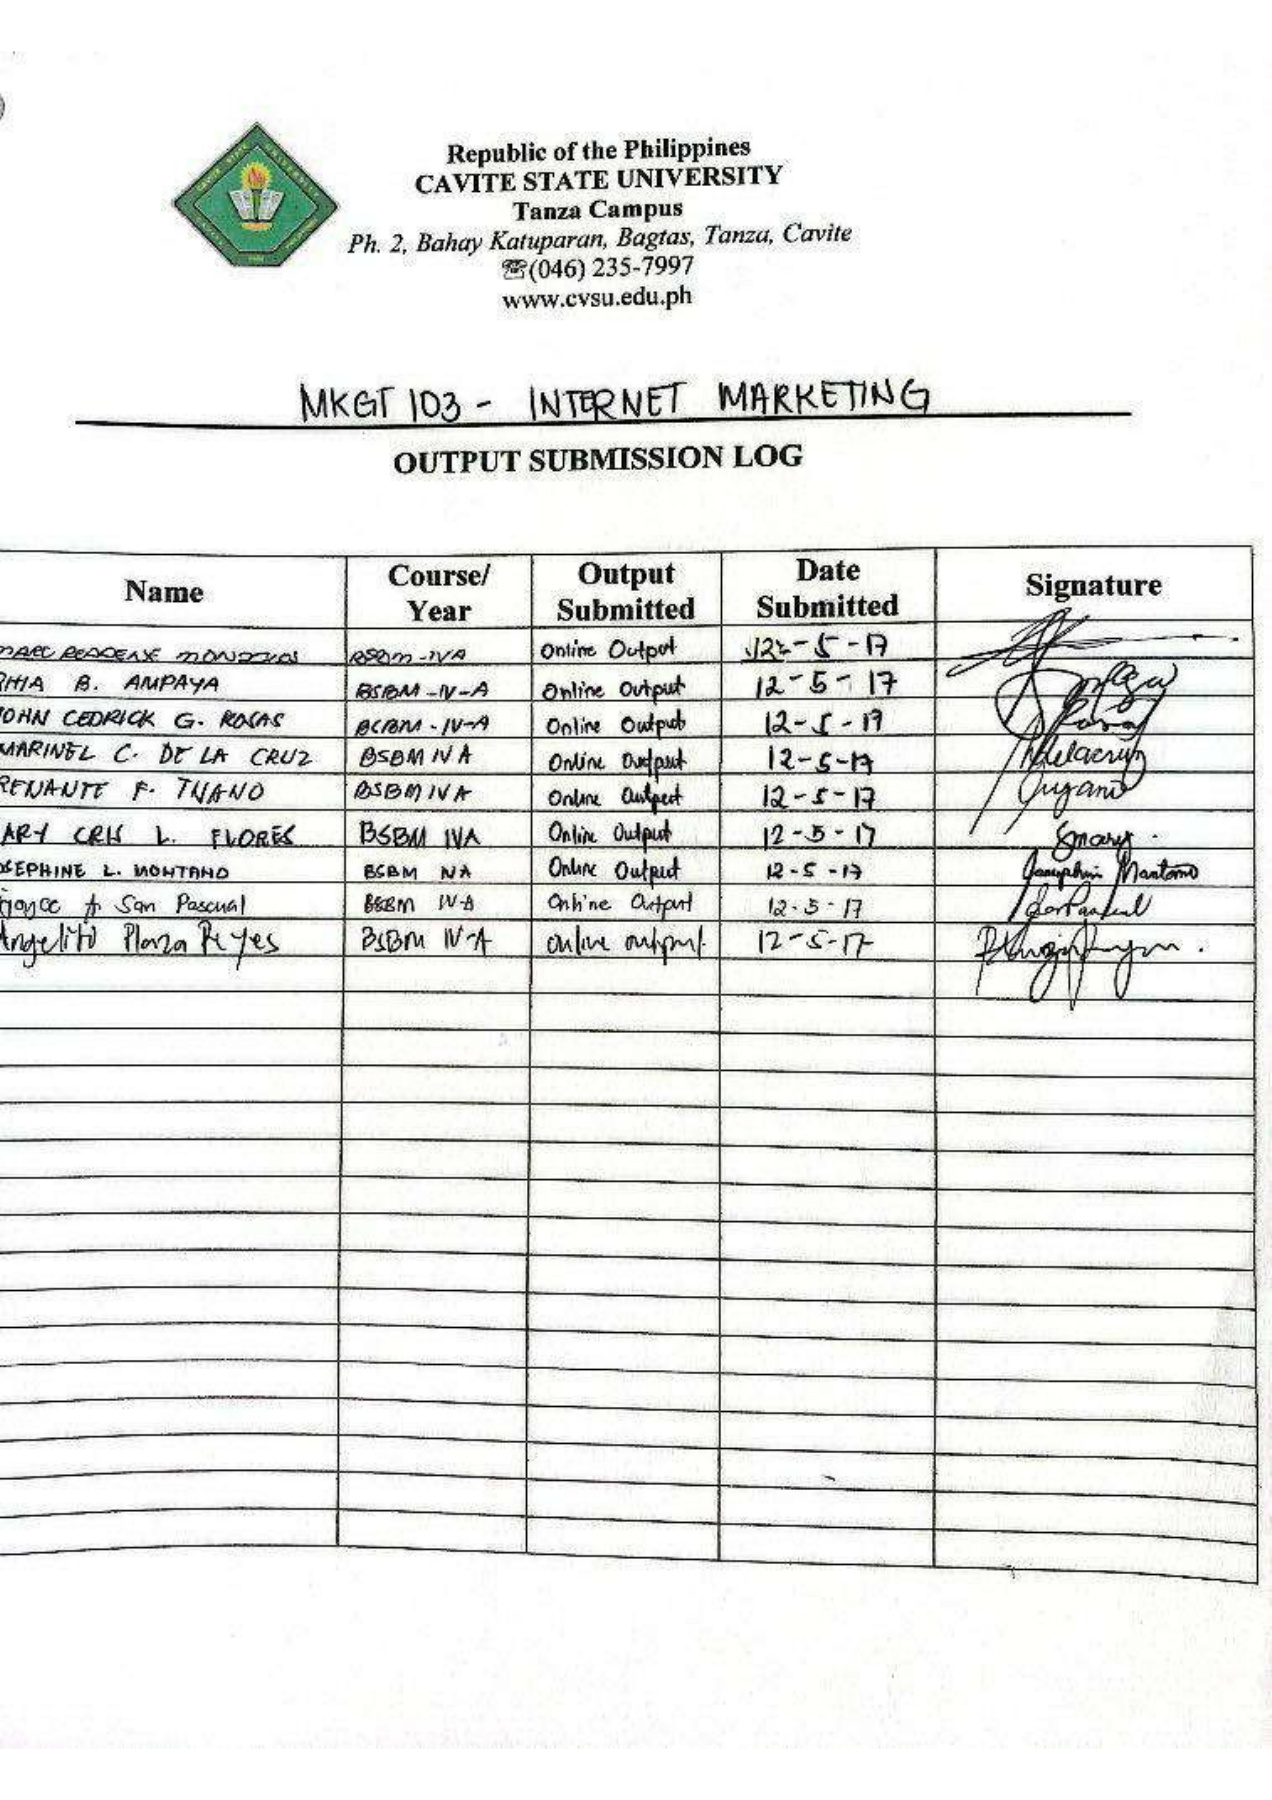 Republic of the Philippines
CAVITE STATE UNIVERSITY
Tanza Campus
Ph. 2, Bahay Katuparan, Bagtas, Tanza, Cavite
☏(046) 235-7997
www.cvsu.edu.ph
MKGT 103 - INTERNET MARKETING
OUTPUT SUBMISSION LOG
Name Course/ Year Output Submitted Date Submitted Signature
BSBM-IVA Online Output 12-5-17
HIA B. AMPAYA BSBM-IV-A Online Output 12-5-17
OHN CEDRICK G. ROSAS BSBM-IV-A Online Output 12-5-17
MARINEL C. DE LA CRUZ BSBM IVA Online Output 12-5-17 Delacruz
RENANTE F. BSBM IVA Online Output 12-5-17
ARY CRIS L. FLORES BSBM IVA Online Output 12-5-17
SEPHINE L. MONTANO BSBM IVA Online Output 12-5-17 Josephine Montano
Joyce A San Pascual BSBM IV-A Online Output 12-5-17 SanPascual
Angelito Plaza Reyes BSBM IV-A Online output 12-5-17